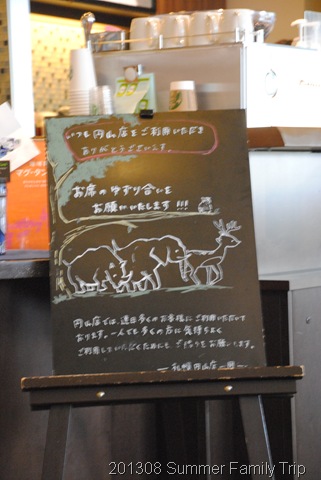 いつも円山店をご利用いただき
ありがとうございます。
お席のゆずり合いを
お願いいたします!!!
円山店では、連日多くのお客様にご利用いただいて
おります。一人でも多くの方に気持ちよく
ご利用していただくためにも、ご協力をお願いします。
札幌円山店一同
マグ・タン
201308 Summer Family Trip